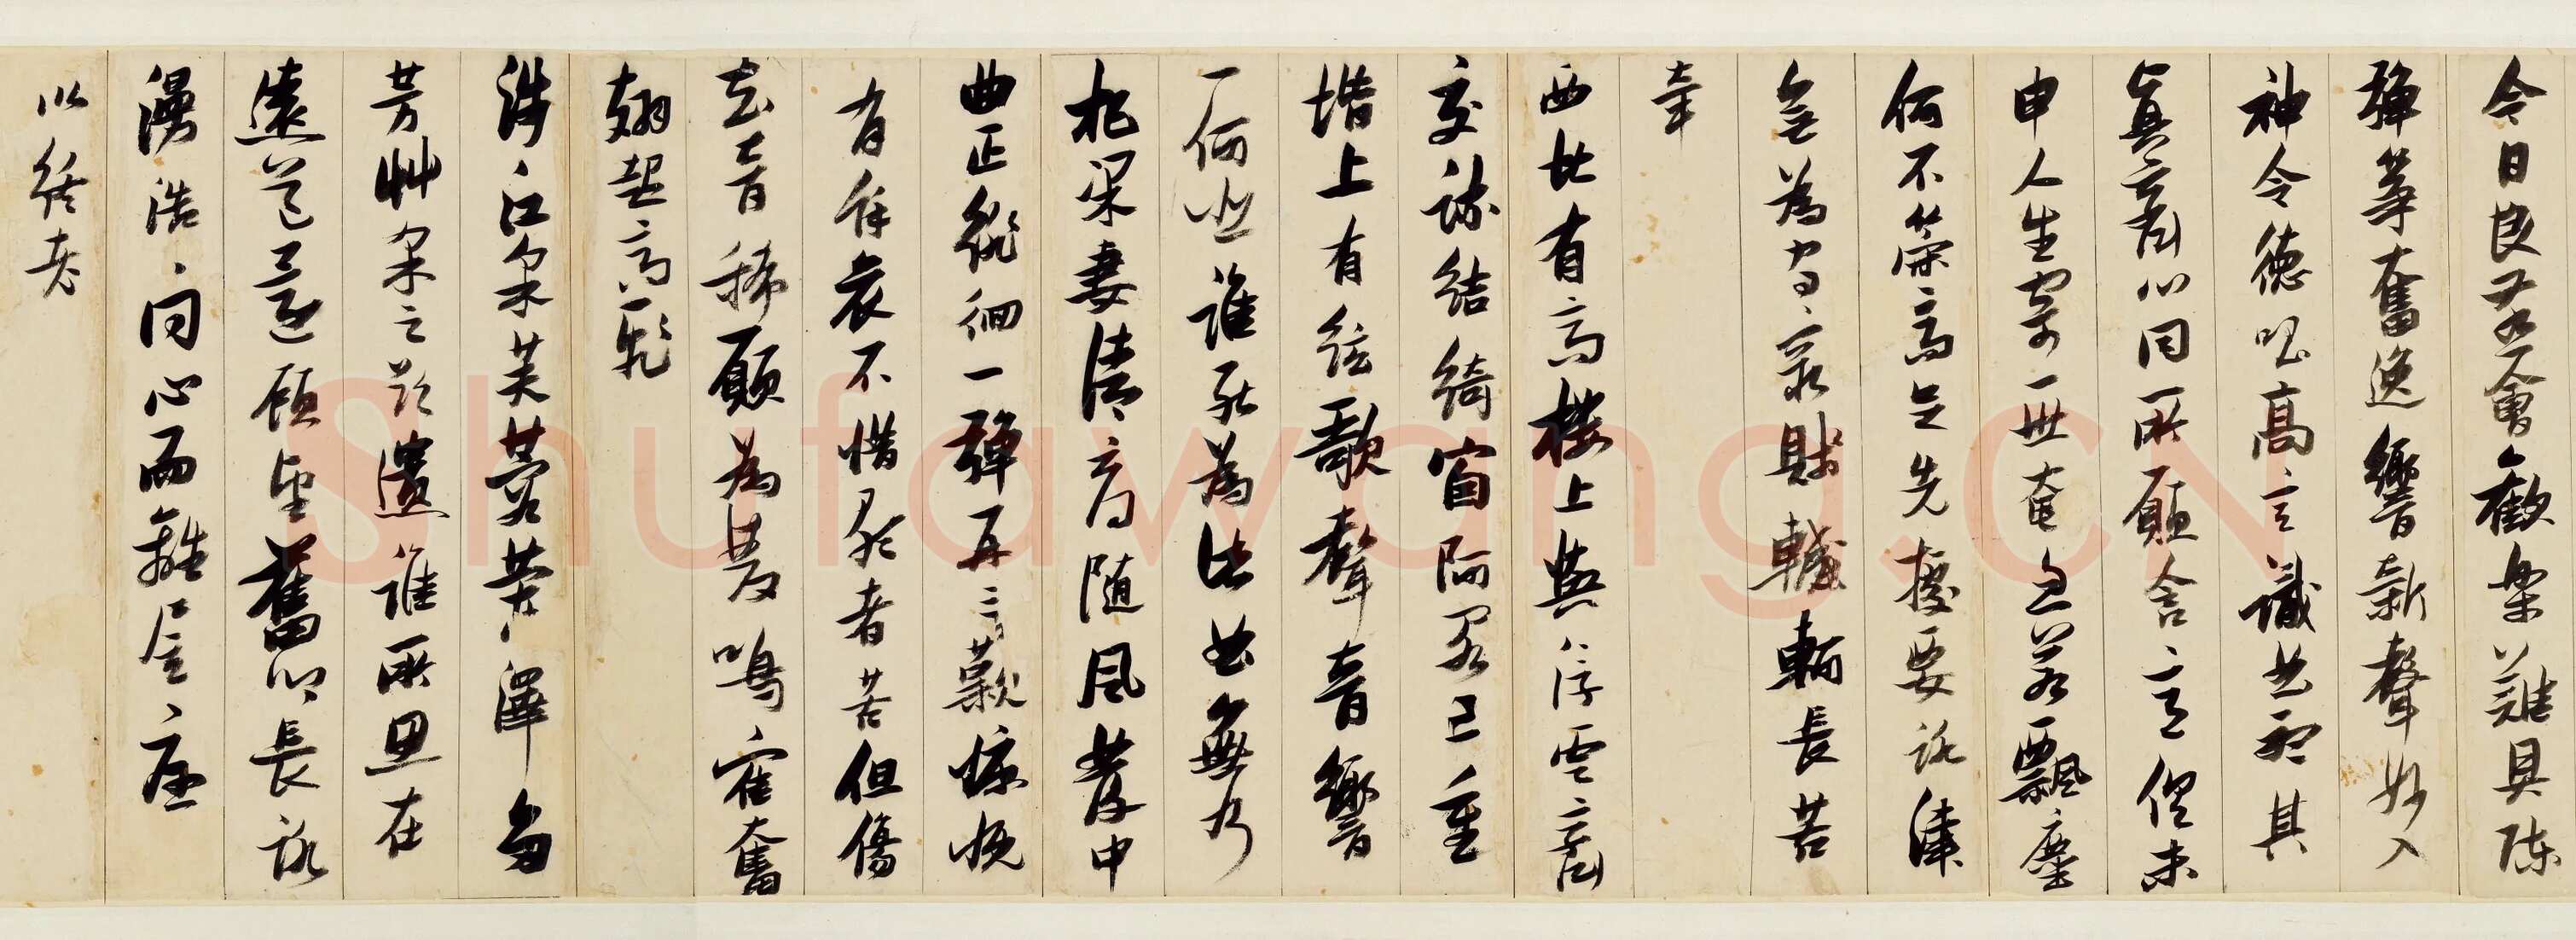 今日良宴會歡樂難具陳
彈箏奮逸響新聲妙入
神令德唱高言識曲聽其
真齊心同所願含意俱未
申人生寄一世奄忽若飄塵
何不策高足先據要路津
無為守窮賤轗軻長苦
辛
西北有高樓上與浮雲齊
交疎結綺窗阿閣三重
階上有絃歌聲音響
一何悲誰能為此曲無乃
杞梁妻清商隨風發中
曲正徘徊一彈再三歎慷慨
有餘哀不惜歌者苦但傷
知音稀願為雙鳴鶴奮
翅起高飛
涉江采芙蓉蘭澤多
芳艸采之欲遺誰所思在
遠道還顧望舊鄉長路
漫浩浩同心而離居憂傷
以終老
Shufawang.CN